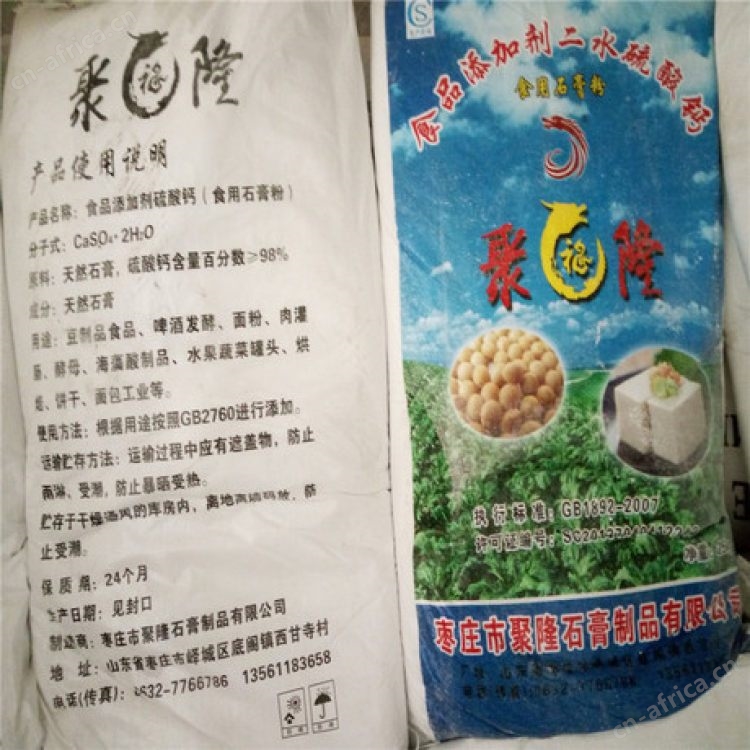 聚福隆
产品使用说明
产品名称：食品添加剂硫酸钙（食用石膏粉）
分子式：CaSO₄·2H₂O
原料：天然石膏，硫酸钙含量百分数≥98%
成分：天然石膏
用途：豆制品食品、啤酒发酵、面粉、肉灌
肠、酵母、海藻酸制品、水果蔬菜罐头、烘
焙、饼干、面包工业等。
使用方法：根据用途按照GB2760进行添加。
运输贮存方法：运输过程中应有遮盖物，防止
雨淋、受潮，防止暴晒受热。
贮存于干燥通风的库房内，离地离墙码放，防
止受潮。
保质期：24个月
生产日期：见封口
制造商：枣庄市聚隆石膏制品有限公司
地址：山东省枣庄市峄城区底阁镇西甘寺村
电话(传真)：0632-7766786 13561183658
食品添加剂二水硫酸钙
食用石膏粉
聚福隆
执行标准：GB1892-2007
许可证编号：
净重：
枣庄市聚隆石膏制品有限公司
厂址：山东
电话(传真)：0632-7766786 1356118
cn-africa.cn
cn-africa.cn